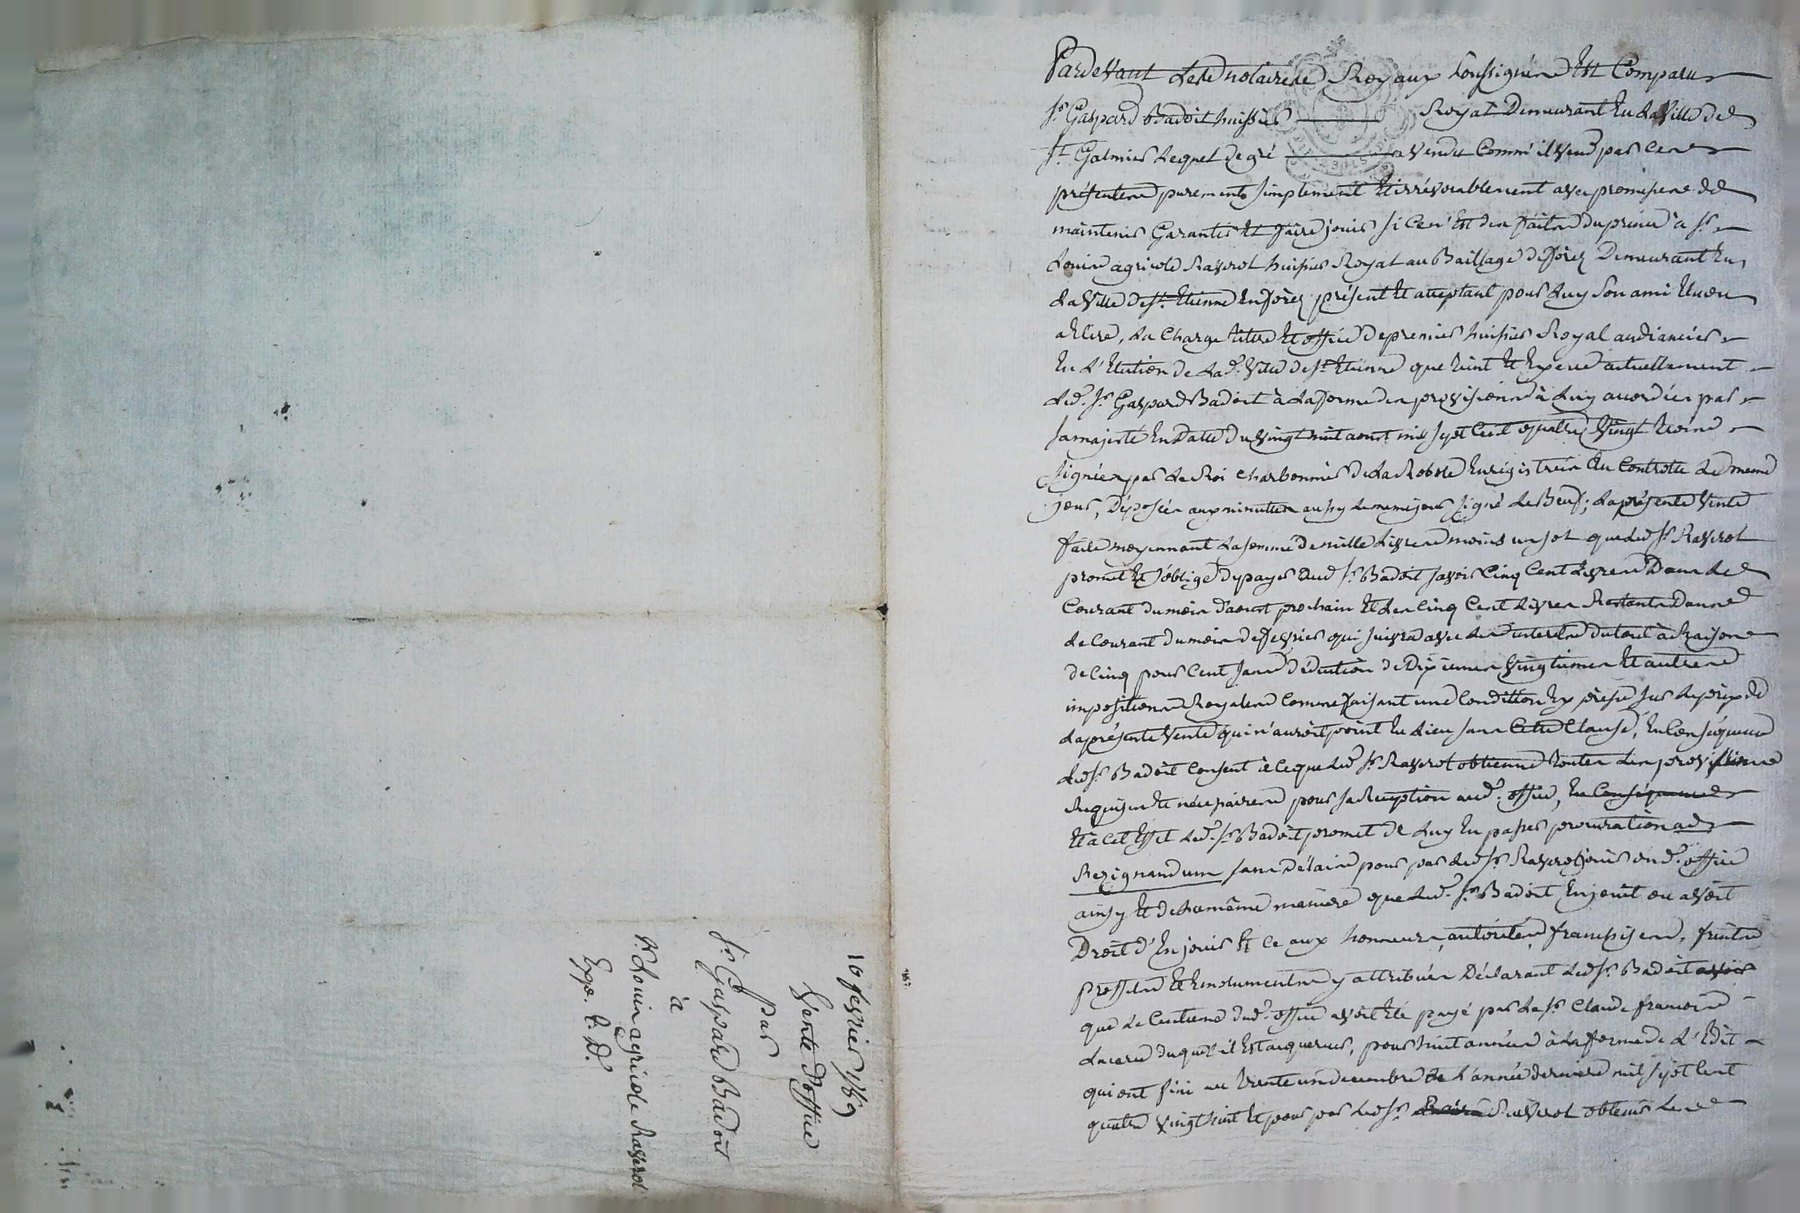 Pardevant les notaires Royaux soussignés Est Comparu
Sr. Gaspard Badoit huissier Royal Demeurant En la Ville de
St. Galmier Lequel de gré a vendu Comm' il vend par ces
présentes purement simplement Et irrévocablement avec promesse de
maintenir Garantir Et faire jouir si Ce n'Est des faits du prince à Sr.
Louis agricole Raverot huissier Royal au Baillage de forez Demeurant En
la Ville de St. Etienne En forez présent Et acceptant pour Luy son ami Elu ou
a Elire, La Charge titre Et office de premier huissier Royal audiancier
En l'Election de lad. Ville de St. Etienne que tient Et Exerce actuellement
led. Sr. Gaspard Badoit à la forme des provisions à Luy accordées par
sa majesté En Datte du Vingt huit aoust mil sept Cent quatre Vingt trois
signées par le Roi Charbonnier de la Robole Enregistrées Au Controlle le meme
jour, Déposées aux minutes aussy le meme jour signé Le Beuf; la présente Vente
faite moyennant la somme de mille Livres moins un sol que led. Sr. Raverot
promet Et s'oblige de payer aud. Sr. Badoit savoir Cinq Cent Livres Dans le
Courant du mois d'aoust prochain Et les Cinq Cent Livres Restants Dans
le Courant du mois de fevrier qui suivra avec les interets du tout à Raison
de Cinq pour Cent sans déduction de Dixiemes Vingtiemes Et autres
impositions Royales Comme faisant une Condition Expresse sur le prix de
la présente Vente qui n'auroit point Eu Lieu sans Cette Clause, En Conséquence
led. Sr. Badoit Consent à Ce que led. Sr. Raverot obtienne toutes les provisions
Requises Et nécessaires pour sa Reception aud. office, En Conséquence
Et à Cet Effet led. Sr. Badoit promet de Luy En passer procuration ad
Rezignandum sans délais pour par led. Sr. Raverot jouir dud. office
ainsy Et de la même maniere que led. Sr. Badoit En jouit ou avoit
Droit d'En jouir Et Ce aux honneurs, autorités, franchises, fruits
proffits Et Emoluments y attribués Déclarant led. Sr. Badoit avoir
que le Centieme dud. office avoit Eté payé par le Sr. Claude francois
duquel il Est acquereur, pour huit années à la forme de L'Edit
qui ont fini au trente un decembre de l'année derniere mil sept Cent
quatre Vingt huit Et pour par led. Sr. Raverot obtenir Les
10 fevrier 1789
Vente d'office
par
Sr. Gaspard Badoit
à
Sr. Louis agricole Raverot
Expe. P. D.